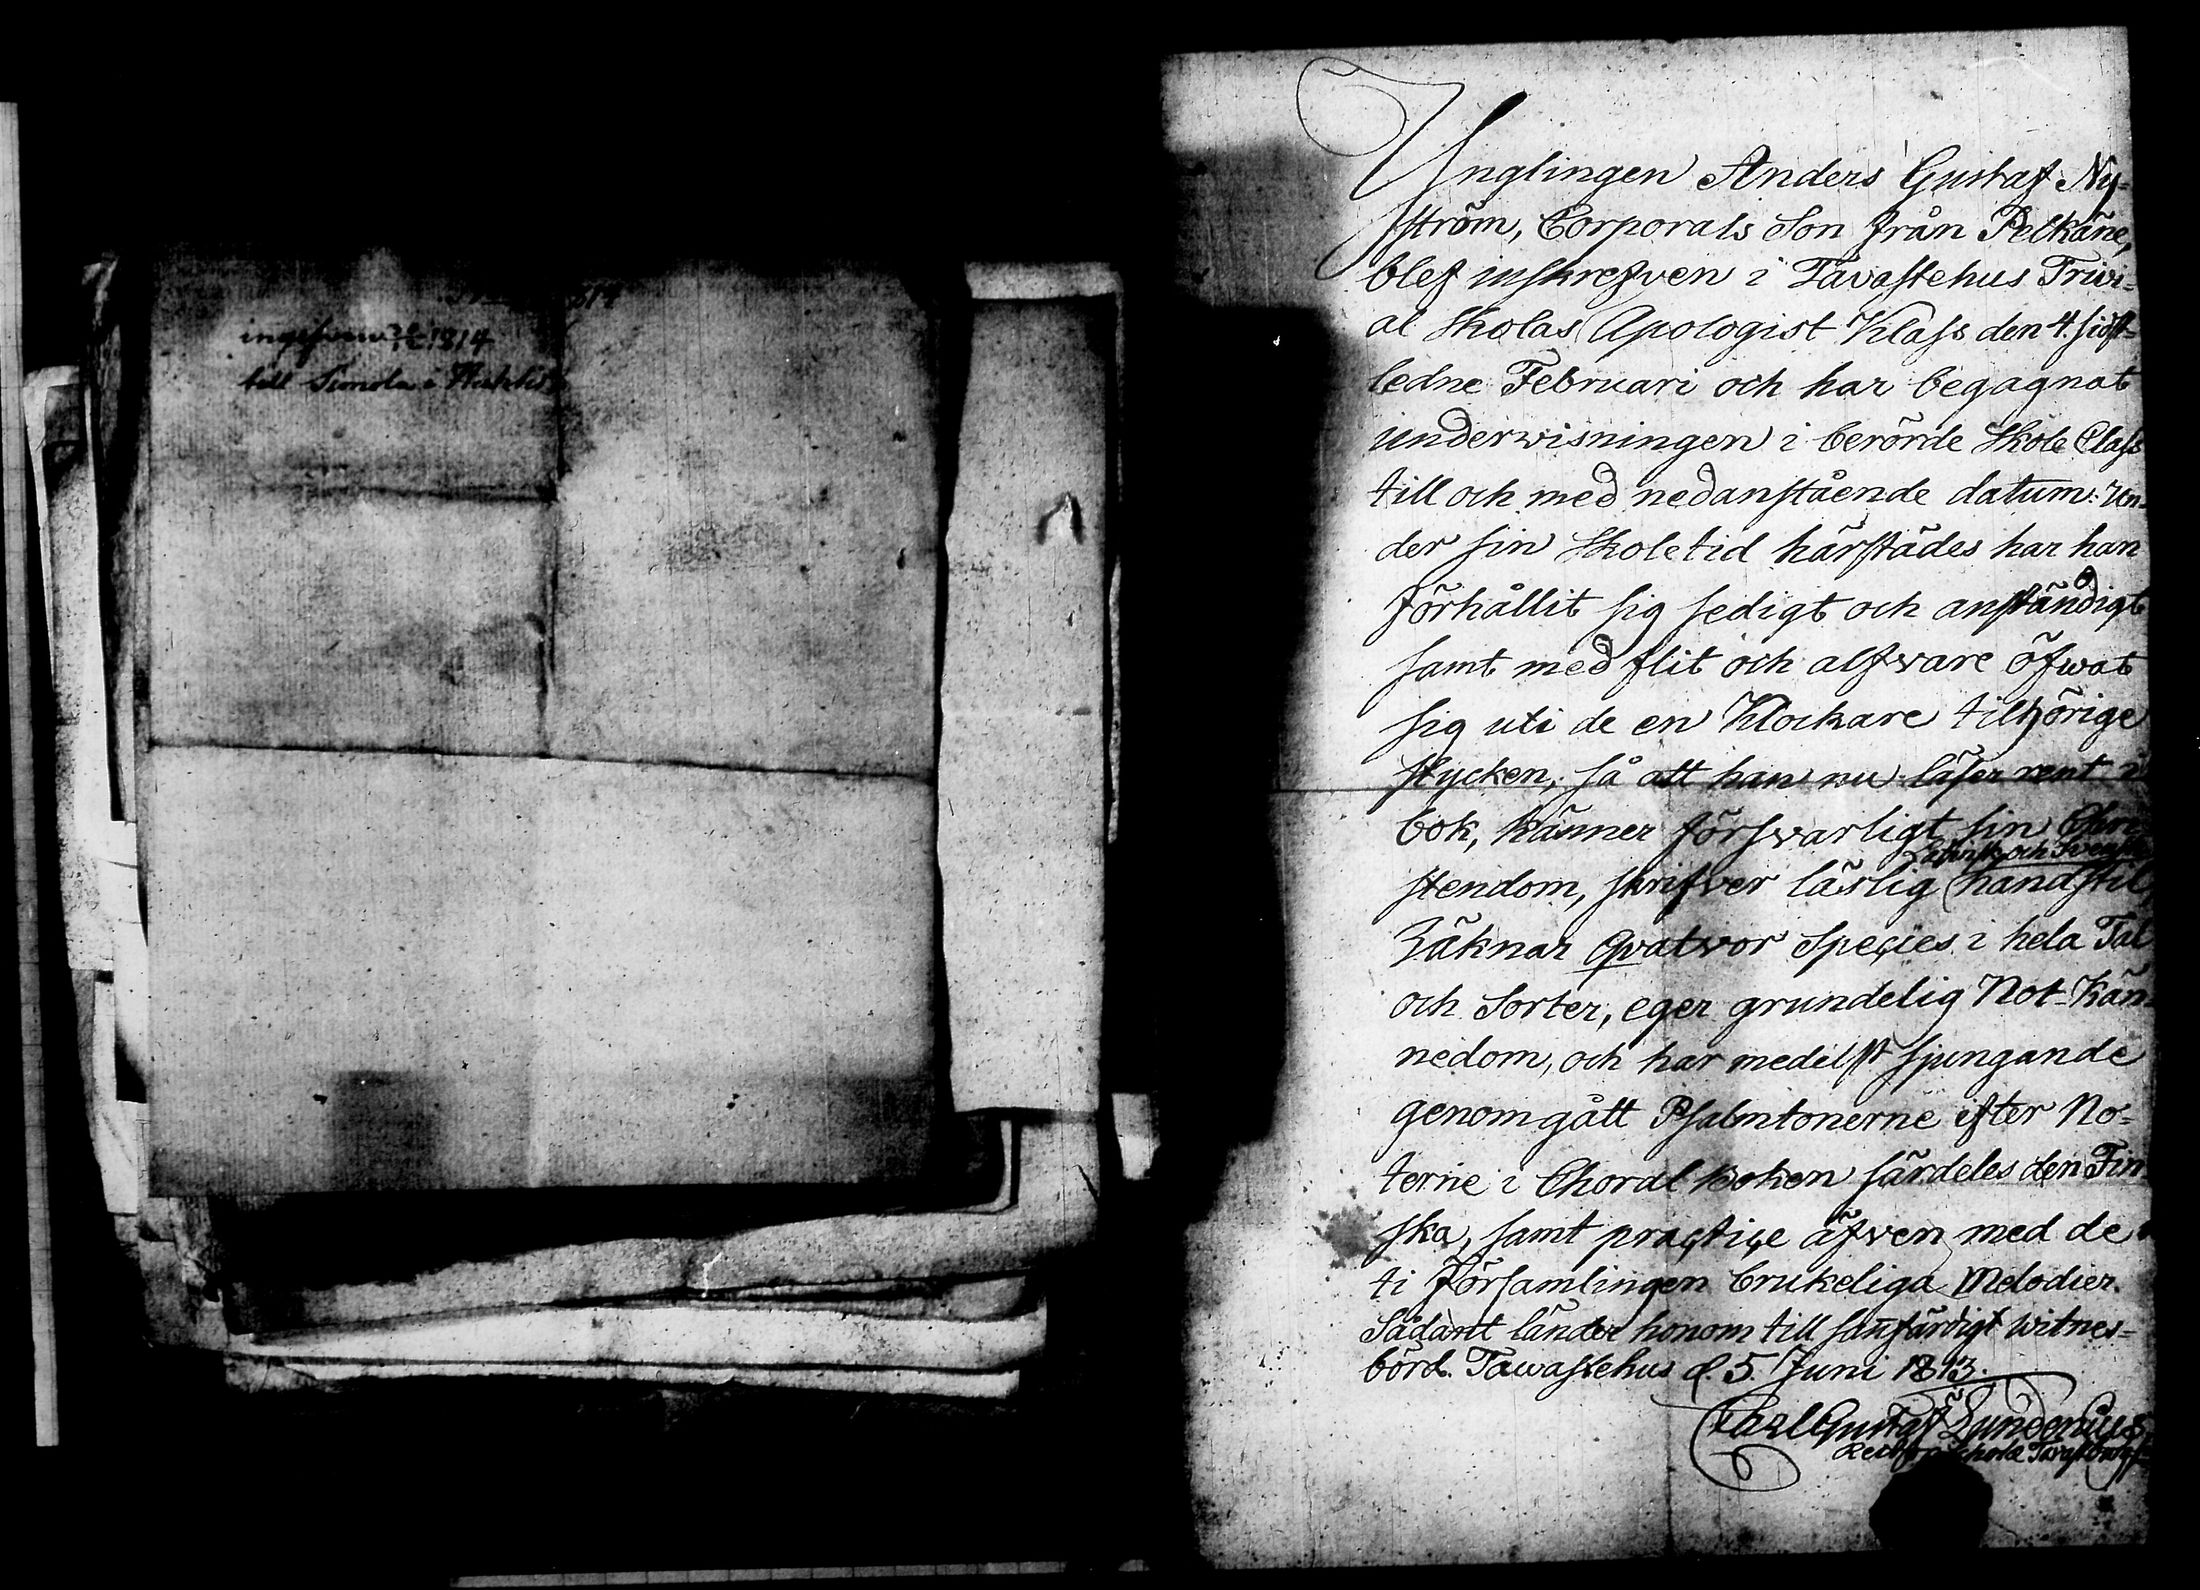 1814
till Simola i
Ynglingen Anders Gustaf Ny-
ström, Corporals Son från Pelkäne,
blef inskrefven i Tavastehus Trivi-
al Skolas Apologist Klass den 4. sidst-
ledne Februari och har begagnat
underwisningen i berörde Skole Class
till och med nedanstående datum. Un-
der sin Skoletid härstädes har han
förhållit sig sedigt och anständigt
samt med flit och alfvare öfwat
sig uti de en Klockare tilhörige
stycken, så att han nu läser rent i
bok, känner försvarligt sin Chri-
Latinsk och Svensk
stendom, skrifver läslig handstil,
Räknar Qvatvor Species i hela Tal
och Sorter, eger grundelig Not-Kän-
nedom, och har medelst sjungande
genomgått Psalmtonerne efter No-
terne i Choral Boken särdeles den Fin-
ska, samt practice äfven med de
i Församlingen brukeliga Melodier.
Sådant länder honom till sanfärdigt witnes-
börd. Tawastehus d. 5. Juni 1813.
Carl Gustaf